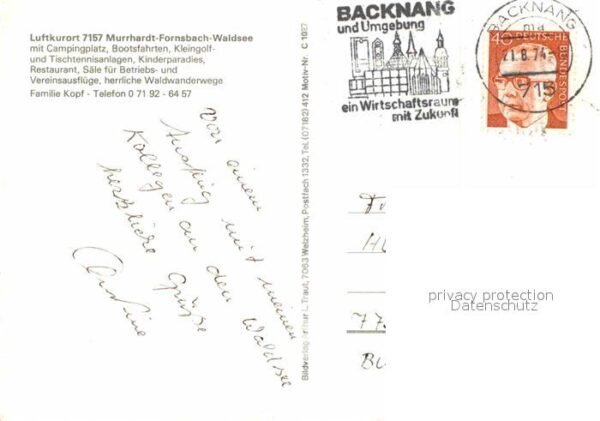 Luftkurort 7157 Murrhardt-Fornsbach-Waldsee
mit Campingplatz, Bootsfahrten, Kleingolf-
und Tischtennisanlagen, Kinderparadies,
Restaurant, Säle für Betriebs- und
Vereinsausflüge, herrliche Waldwanderwege
Familie Kopf - Telefon 0 71 92 - 64 57
Von einem
Ausflug mit meinen
Kollegen an den Waldsee
herzliche Grüße
Bildverlag Arthur L. Traut, 7063 Welzheim, Postfach 1332, Tel. (07182) 412 Motiv-Nr. C 1087
BACKNANG
und Umgebung
ein Wirtschaftsraum
mit Zukunft
BACKNANG
21.8.74
715
40
DEUTSCHE BUNDESPOST
77
privacy protection
Datenschutz